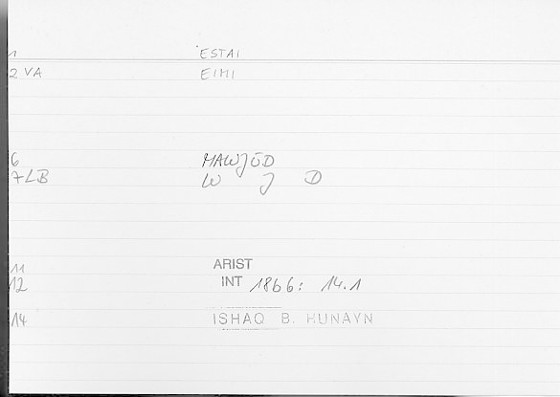 1 ESTAI
2 VA EIMI
6 MAWJŪD
7 LB W J D
11 ARIST
12 INT 1866: 14.1
14 ISHAQ B. HUNAYN